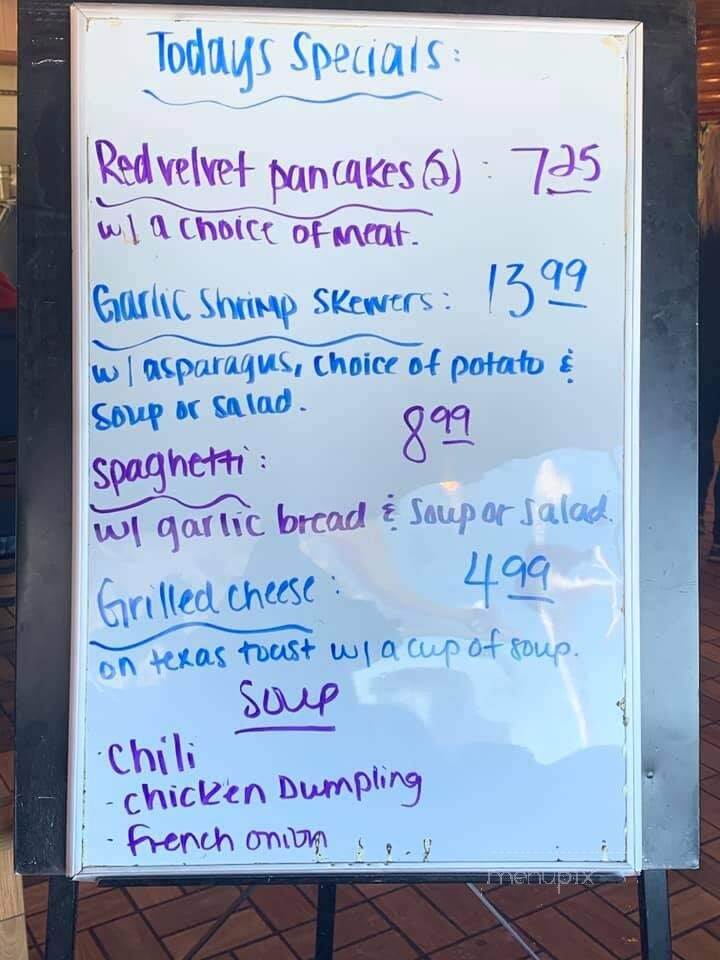 Todays Specials:
Red velvet pancakes (2) : 7 25
w/ a choice of meat.
Garlic Shrimp Skewers: 13 99
w/ asparagus, choice of potato &
Soup or salad.
8 99
spaghetti:
w/ garlic bread & Soup or Salad.
Grilled cheese: 4 99
on texas toast w/ a cup of soup.
Soup
· Chili
- chicken Dumpling
- french onion
menupix